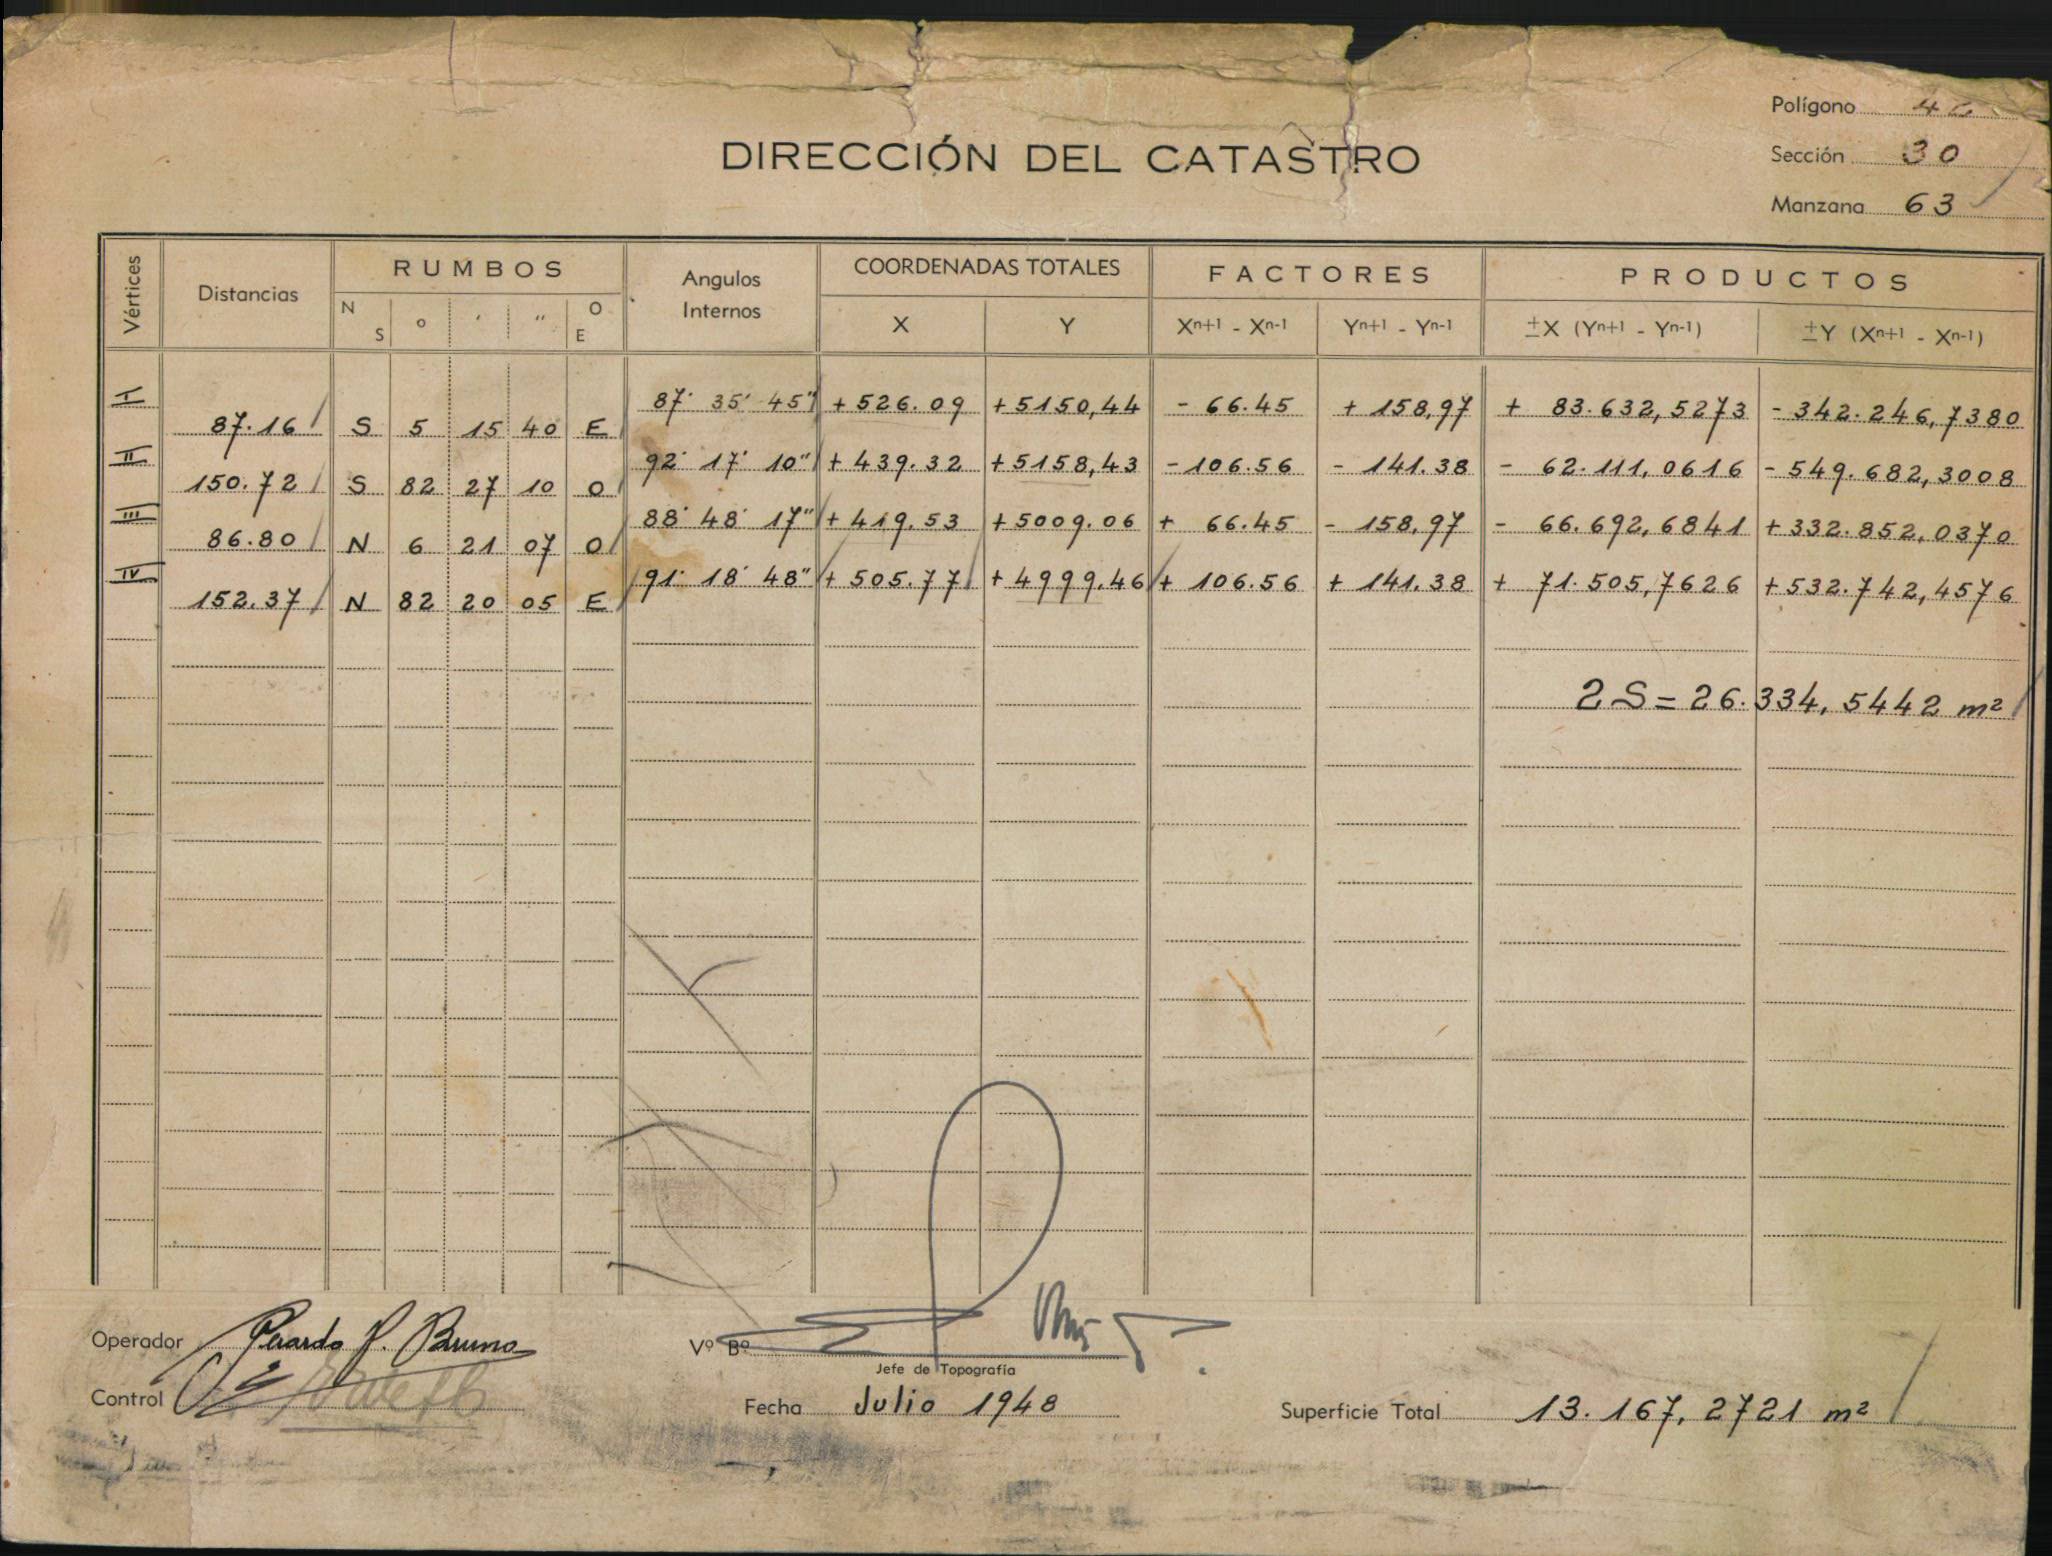 Polígono
DIRECCIÓN DEL CATASTRO
Sección 30
Manzana 63
Vértices Distancias RUMBOS Angulos Internos COORDENADAS TOTALES FACTORES PRODUCTOS
N S º ' '' O E X Y Xn+1 - Xn-1 Yn+1 - Yn-1 ±X (Yn+1 - Yn-1) ±Y (Xn+1 - Xn-1)
I 87.16 S 5 15 40 E 87° 35' 45" +526.09 +5150,44 -66.45 +158,97 + 83.632,5273 -342.246,7380
II 150.72 S 82 27 10 O 92° 17' 10" +439.32 +5158,43 -106.56 - 141.38 - 62.111,0616 -549.682,3008
III 86.80 N 6 21 07 O 88° 48' 17" +419.53 +5009.06 + 66.45 - 158,97 - 66.692,6841 +332.852,0370
IV 152.37 N 82 20 05 E 91° 18' 48" + 505.77 +4999.46 + 106.56 + 141.38 + 71.505,7626 +532.742,4576
2S = 26.334,5442 m²
Operador P. Bruno
Vº Bº
Jefe de Topografía
Control
Fecha Julio 1948
Superficie Total 13.167,2721 m²